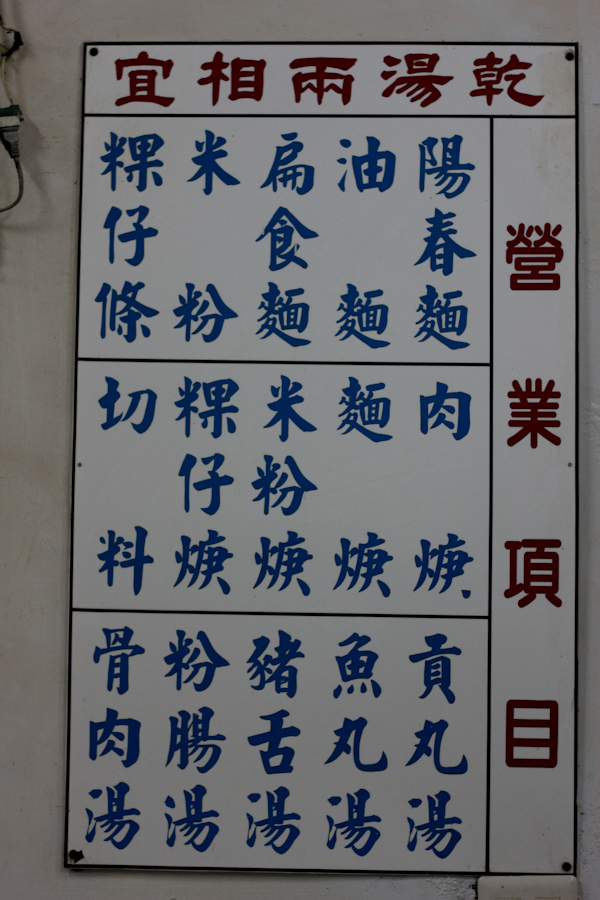 乾湯兩相宜
營業項目
陽春麵
油麵
扁食麵
米粉
粿仔條
肉焿
麵焿
米粉焿
粿仔焿
切料
貢丸湯
魚丸湯
豬舌湯
粉腸湯
骨肉湯